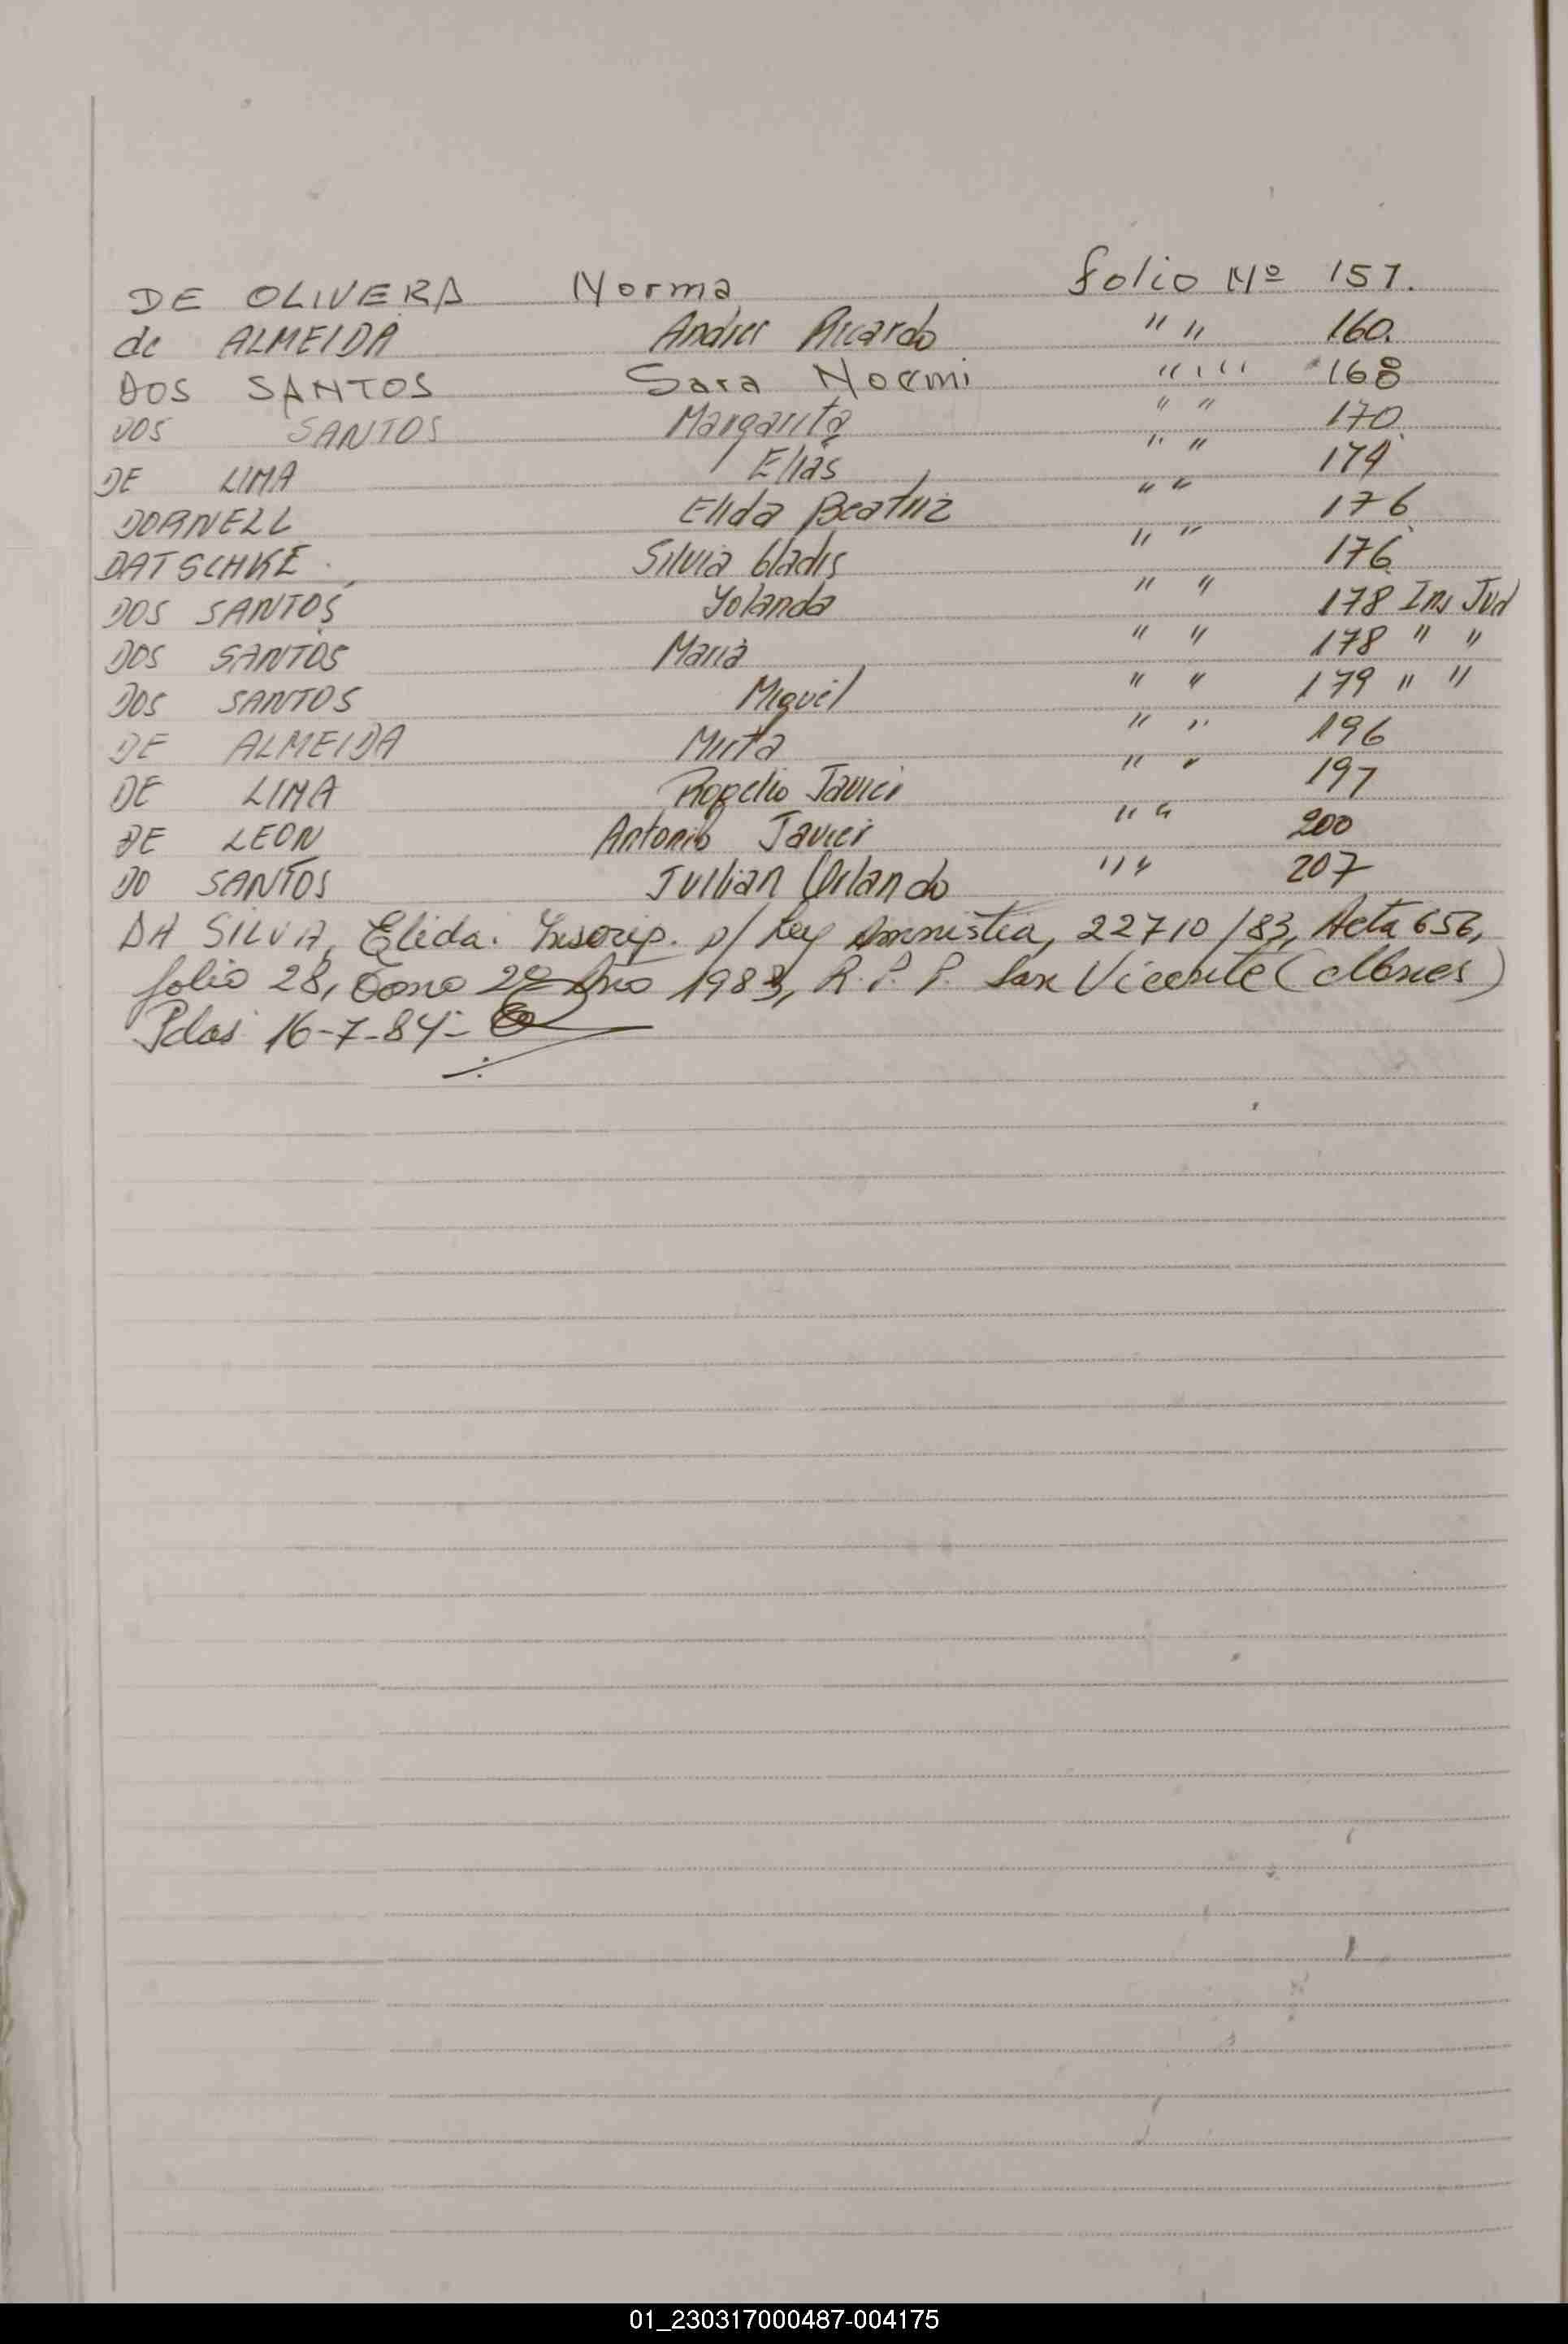 DE OLIVERA Norma folio Nº 157.
de ALMEIDA Andres Ricardo " " 160.
DOS SANTOS Sara Noemi " " 168
DOS SANTOS Margarita " " 170
DE LIMA Elias " " 174
DORNELL Elida Beatriz " " 176
DATSCHKE Silvia Gladis " " 176
DOS SANTOS Yolanda " " 178 Ins Jud
DOS SANTOS Maria " " 178 " "
DOS SANTOS Miguel " " 179 " "
DE ALMEIDA Mirta " " 196
DE LIMA Rogelio Javier " " 197
DE LEON Antonio Javier " " 200
DO SANTOS Jullian Orlando " " 207
DA SILVA, Elida. Inscrip. p/ Ley Amnistia, 22710/83, Acta 656,
folio 28, Tomo 2º Año 1983, R. P. P. San Vicente (Mnes)
Pdas 16-7-84-
01_230317000487-004175